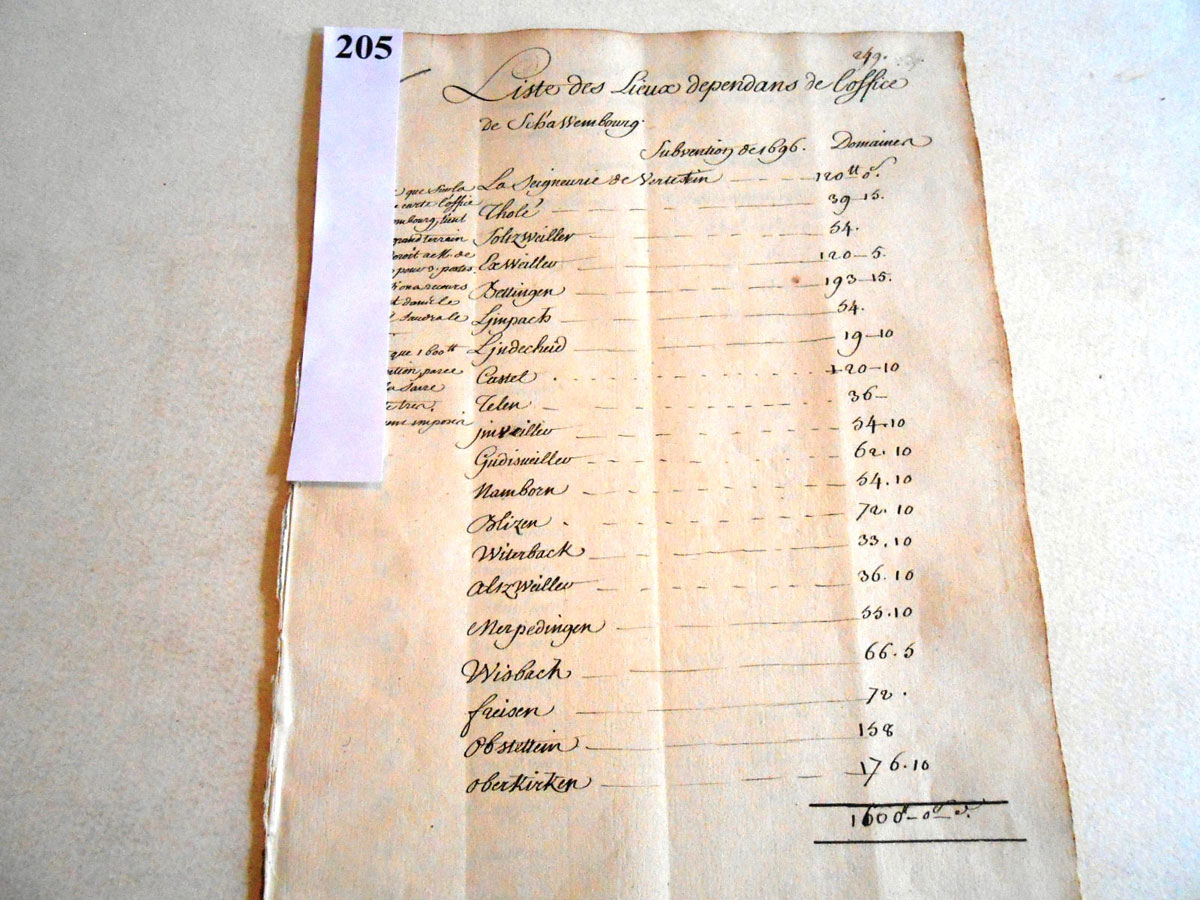 205
249.
Liste des Lieux dependans de l'office
de Schawembourg.
Subvention de 1696. Domaines
La Seigneurie de Vertstein 120 tt o s.
Tholé 39-15.
Soltzweiller 54.
Exweiller 120-5.
Bettingen 193-15.
Limpach 54.
Lindecheid 19-10
Castel 120-10
Telen 36-
Imweiller 54.10
Gudisweiller 62.10
Namborn 54.10
Blizen 72.10
Witerback 33.10
Altzweiller 36.10
Merpedingen 55.10
Wisbach 66.5
freisen 72.
Obstettein 158
oberkirken 176.10
1600 tt - o s - o d.
que sur la
carte l'office
mbourg, tient
grand terrain
droit a M. de
pour 3. postes
on a recours
t dans le
que 1600 tt
parce
la Sare
tres
imposer